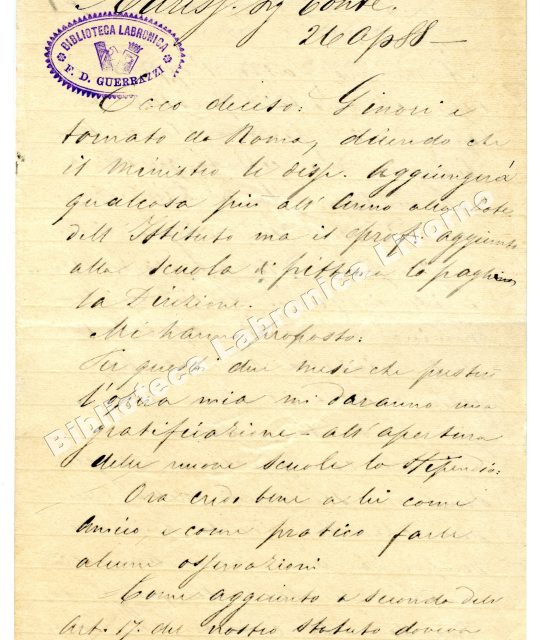 BIBLIOTECA LABRONICA
F. D. GUERRAZZI
Sig Conte.
26 Ap 88 –
Ecco deciso: Ginori è
tornato da Roma, dicendo che
il Ministro le disse. Aggiungerà
qualcosa più all'Anno alla
dell'Istituto ma il aggiunto
alla scuola di pittura lo paghino
la Direzione.
Mi hanno proposto:
Per questi due mesi che presterò
l'opera mia mi daranno una
gratificazione – all'apertura
delle nuove scuole lo stipendio:
Ora credo bene a lei come
Amico, e come pratico farle
alcune osservazioni
Come aggiunto a seconda dell'
Art. 17. del nostro statuto doveva
Biblioteca Labronica Livorno